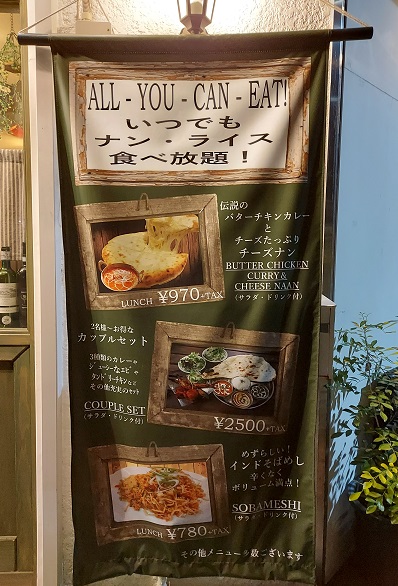 ALL - YOU - CAN - EAT!
いつでも
ナン・ライス
食べ放題！
伝説の
バターチキンカレー
と
チーズたっぷり
チーズナン
BUTTER CHICKEN
CURRY &
CHEESE NAAN
(サラダ・ドリンク付)
LUNCH ¥970+TAX
2名様～お得な
カップルセット
3種類のカレーや
ジューシーなエビや
タンドリーチキンなど
その他充実のセット
COUPLE SET
(サラダ・ドリンク付)
¥2500+TAX
めずらしい！
インドそばめし
辛くなく
ボリューム満点！
SOBAMESHI
(サラダ・ドリンク付)
LUNCH ¥780+TAX
その他メニュー多数ございます